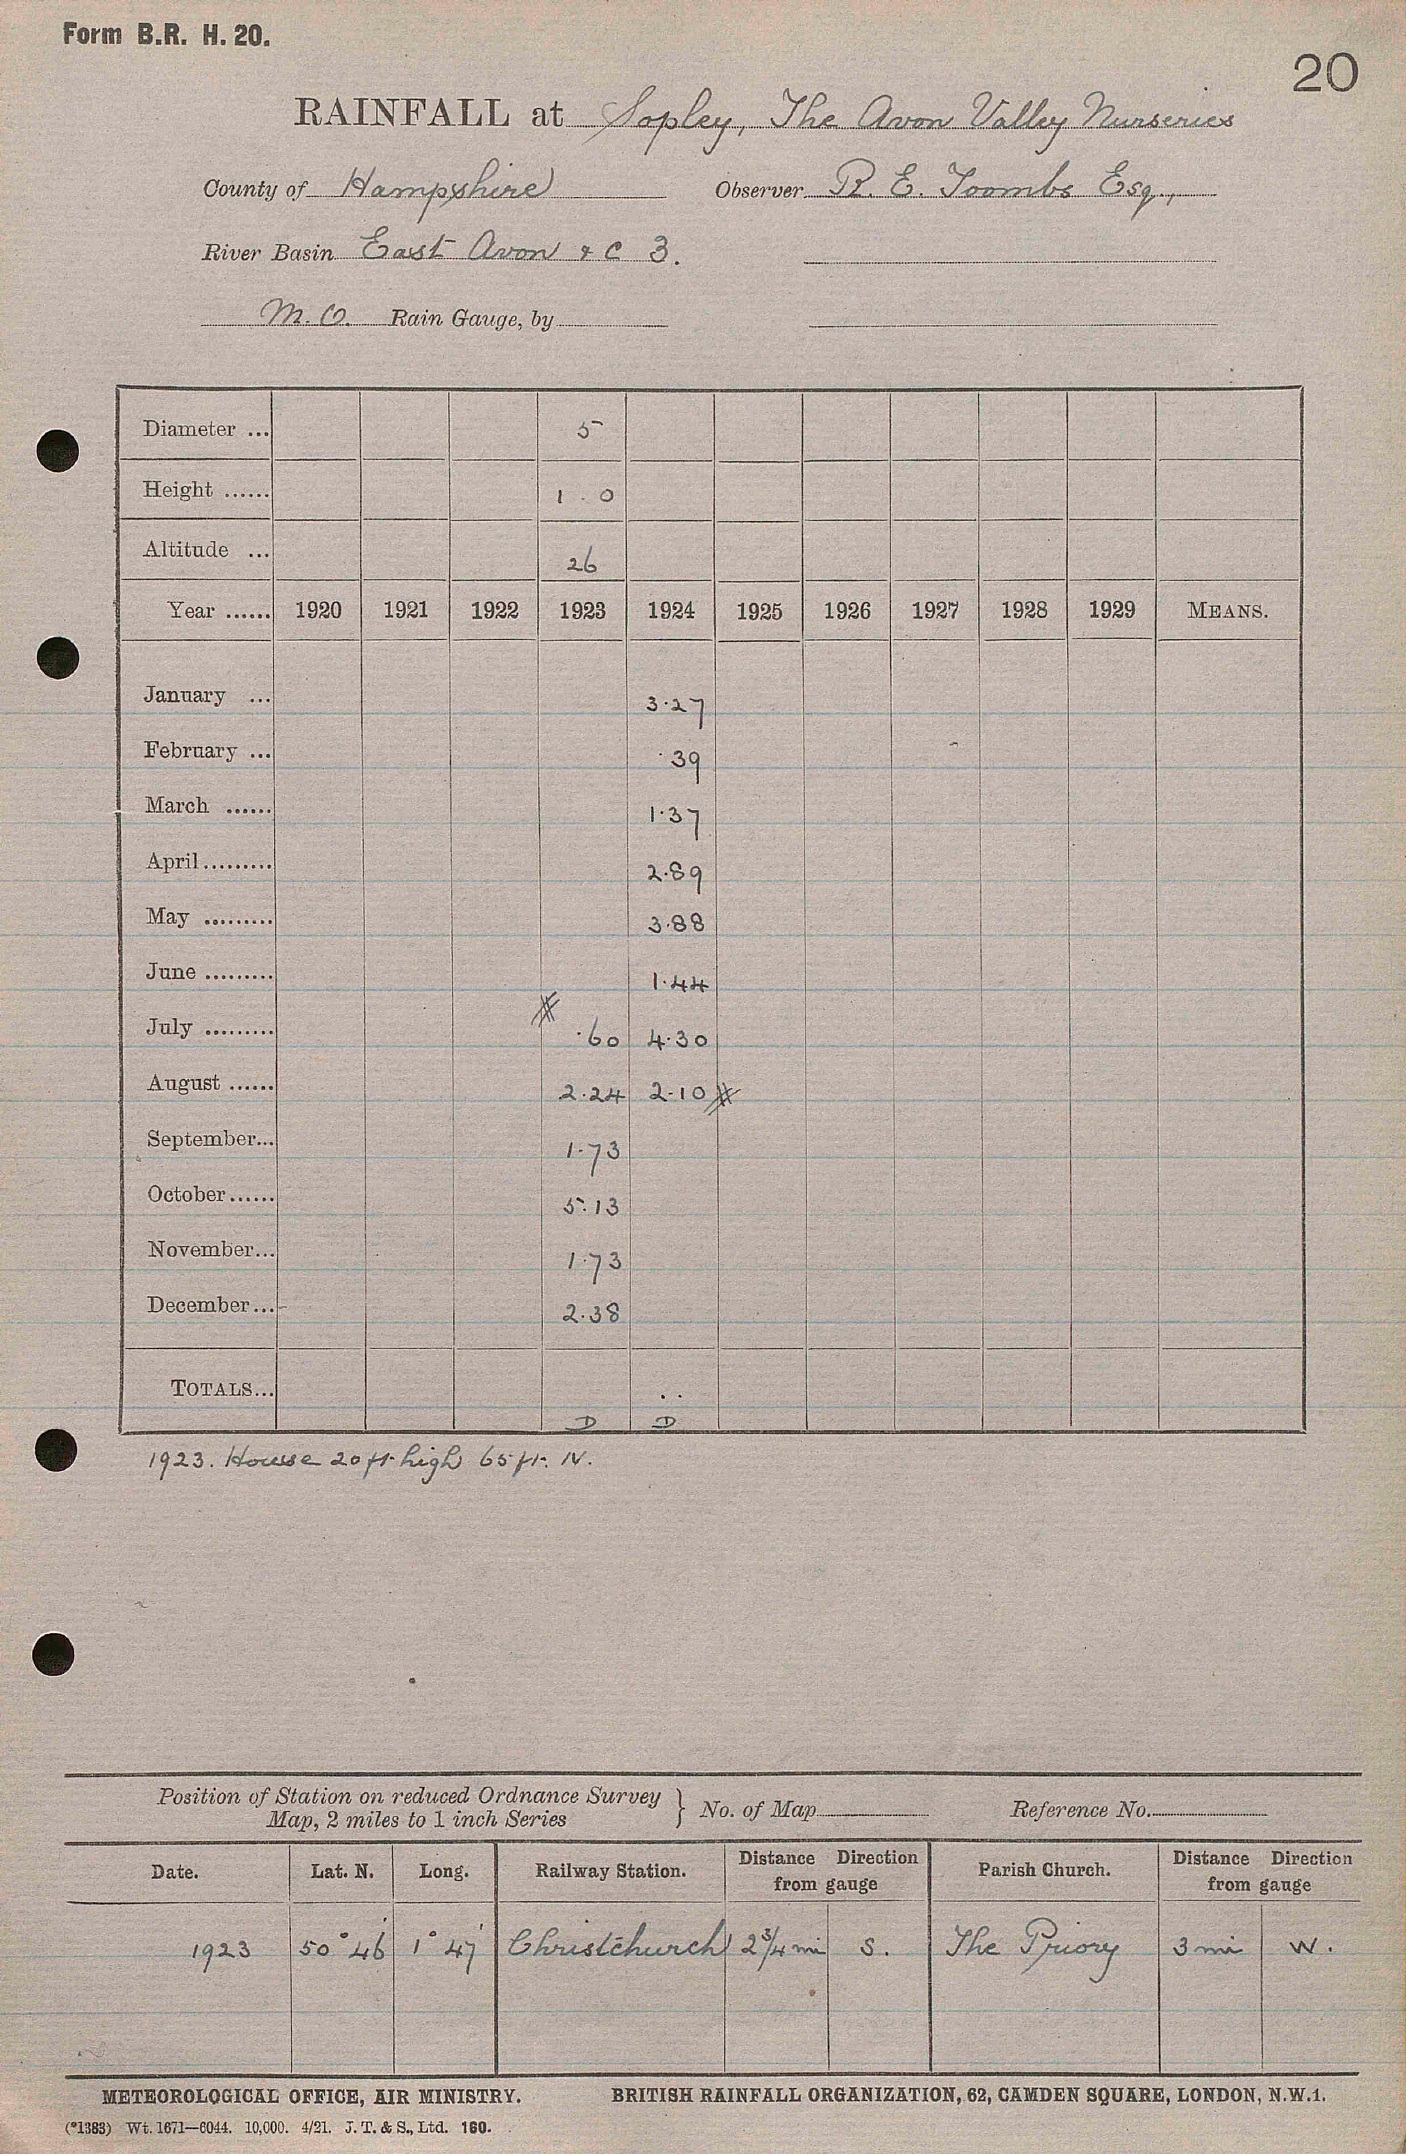 Form B.R. H. 20.
20
RAINFALL at Sopley, The Avon Valley Nurseries
County of Hampshire Observer R. E. Toombs Esq.,
River Basin East Avon & C 3.
M. O. Rain Gauge, by
Diameter ... 5
Height ...... 1 . 0
Altitude ... 26
Year ...... 1920 1921 1922 1923 1924 1925 1926 1927 1928 1929 MEANS.
January ... 3.27
February ... .39
March ...... 1.37
April ......... 2.89
May ......... 3.88
June ......... 1.44
July ......... .60 4.30
August ...... 2.24 2.10
September... 1.73
October ...... 5.13
November... 1.73
December... 2.38
TOTALS... ..
D D
1923. House 20 ft. high 65 ft. N.
Position of Station on reduced Ordnance Survey
Map, 2 miles to 1 inch Series } No. of Map Reference No.
Date. Lat. N. Long. Railway Station. Distance Direction from gauge Parish Church. Distance Direction from gauge
1923 50° 46' 1° 47' Christchurch 2 3/4 mi S. The Priory 3 mi W.
METEOROLOGICAL OFFICE, AIR MINISTRY. BRITISH RAINFALL ORGANIZATION, 62, CAMDEN SQUARE, LONDON, N.W.1.
(*1383) Wt. 1671—6044. 10,000. 4/21. J. T. & S., Ltd. 160.